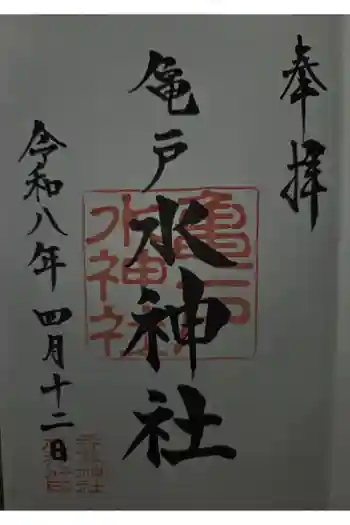 奉拝
亀戸水神社
令和八年四月十二日
亀戸
水神社